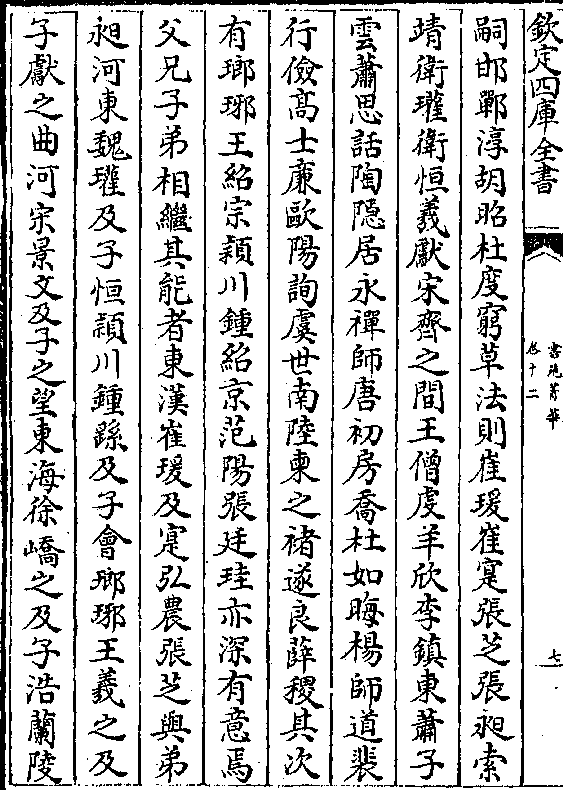 欽定四庫全書
書苑菁華
卷十二
七
嗣邯鄲淳胡昭杜度窮草法則崔瑗崔寔張芝張昶索
靖衛瓘衛恒羲獻宋齊之間王僧虔羊欣李鎮東蕭子
雲蕭思話陶隱居永禪師唐初房喬杜如晦楊師道裴
行儉高士廉歐陽詢虞世南陸柬之褚遂良薛稷其次
有瑯琊王紹宗潁川鍾紹京范陽張廷珪亦深有意焉
父兄子弟相繼其能者東漢崔瑗及寔弘農張芝與弟
昶河東魏瓘及子恒潁川鍾繇及子會瑯琊王羲之及
子獻之曲河宋景文及子之望東海徐嶠之及子浩蘭陵